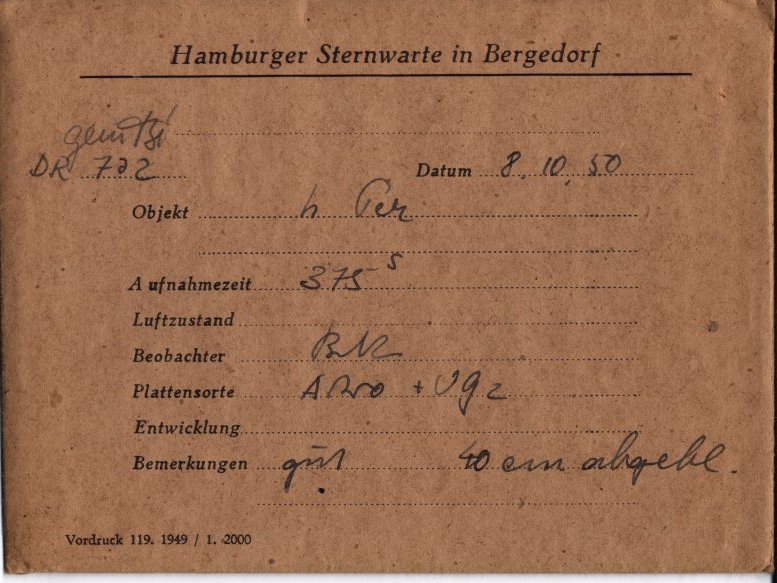 Hamburger Sternwarte in Bergedorf
DR 722 Datum 8. 10. 50
Objekt h Per
Aufnahmezeit 375 s
Luftzustand
Beobachter
Plattensorte
Entwicklung
Bemerkungen gut 40 cm abgebl.
Vordruck 119. 1949 / 1. 2000